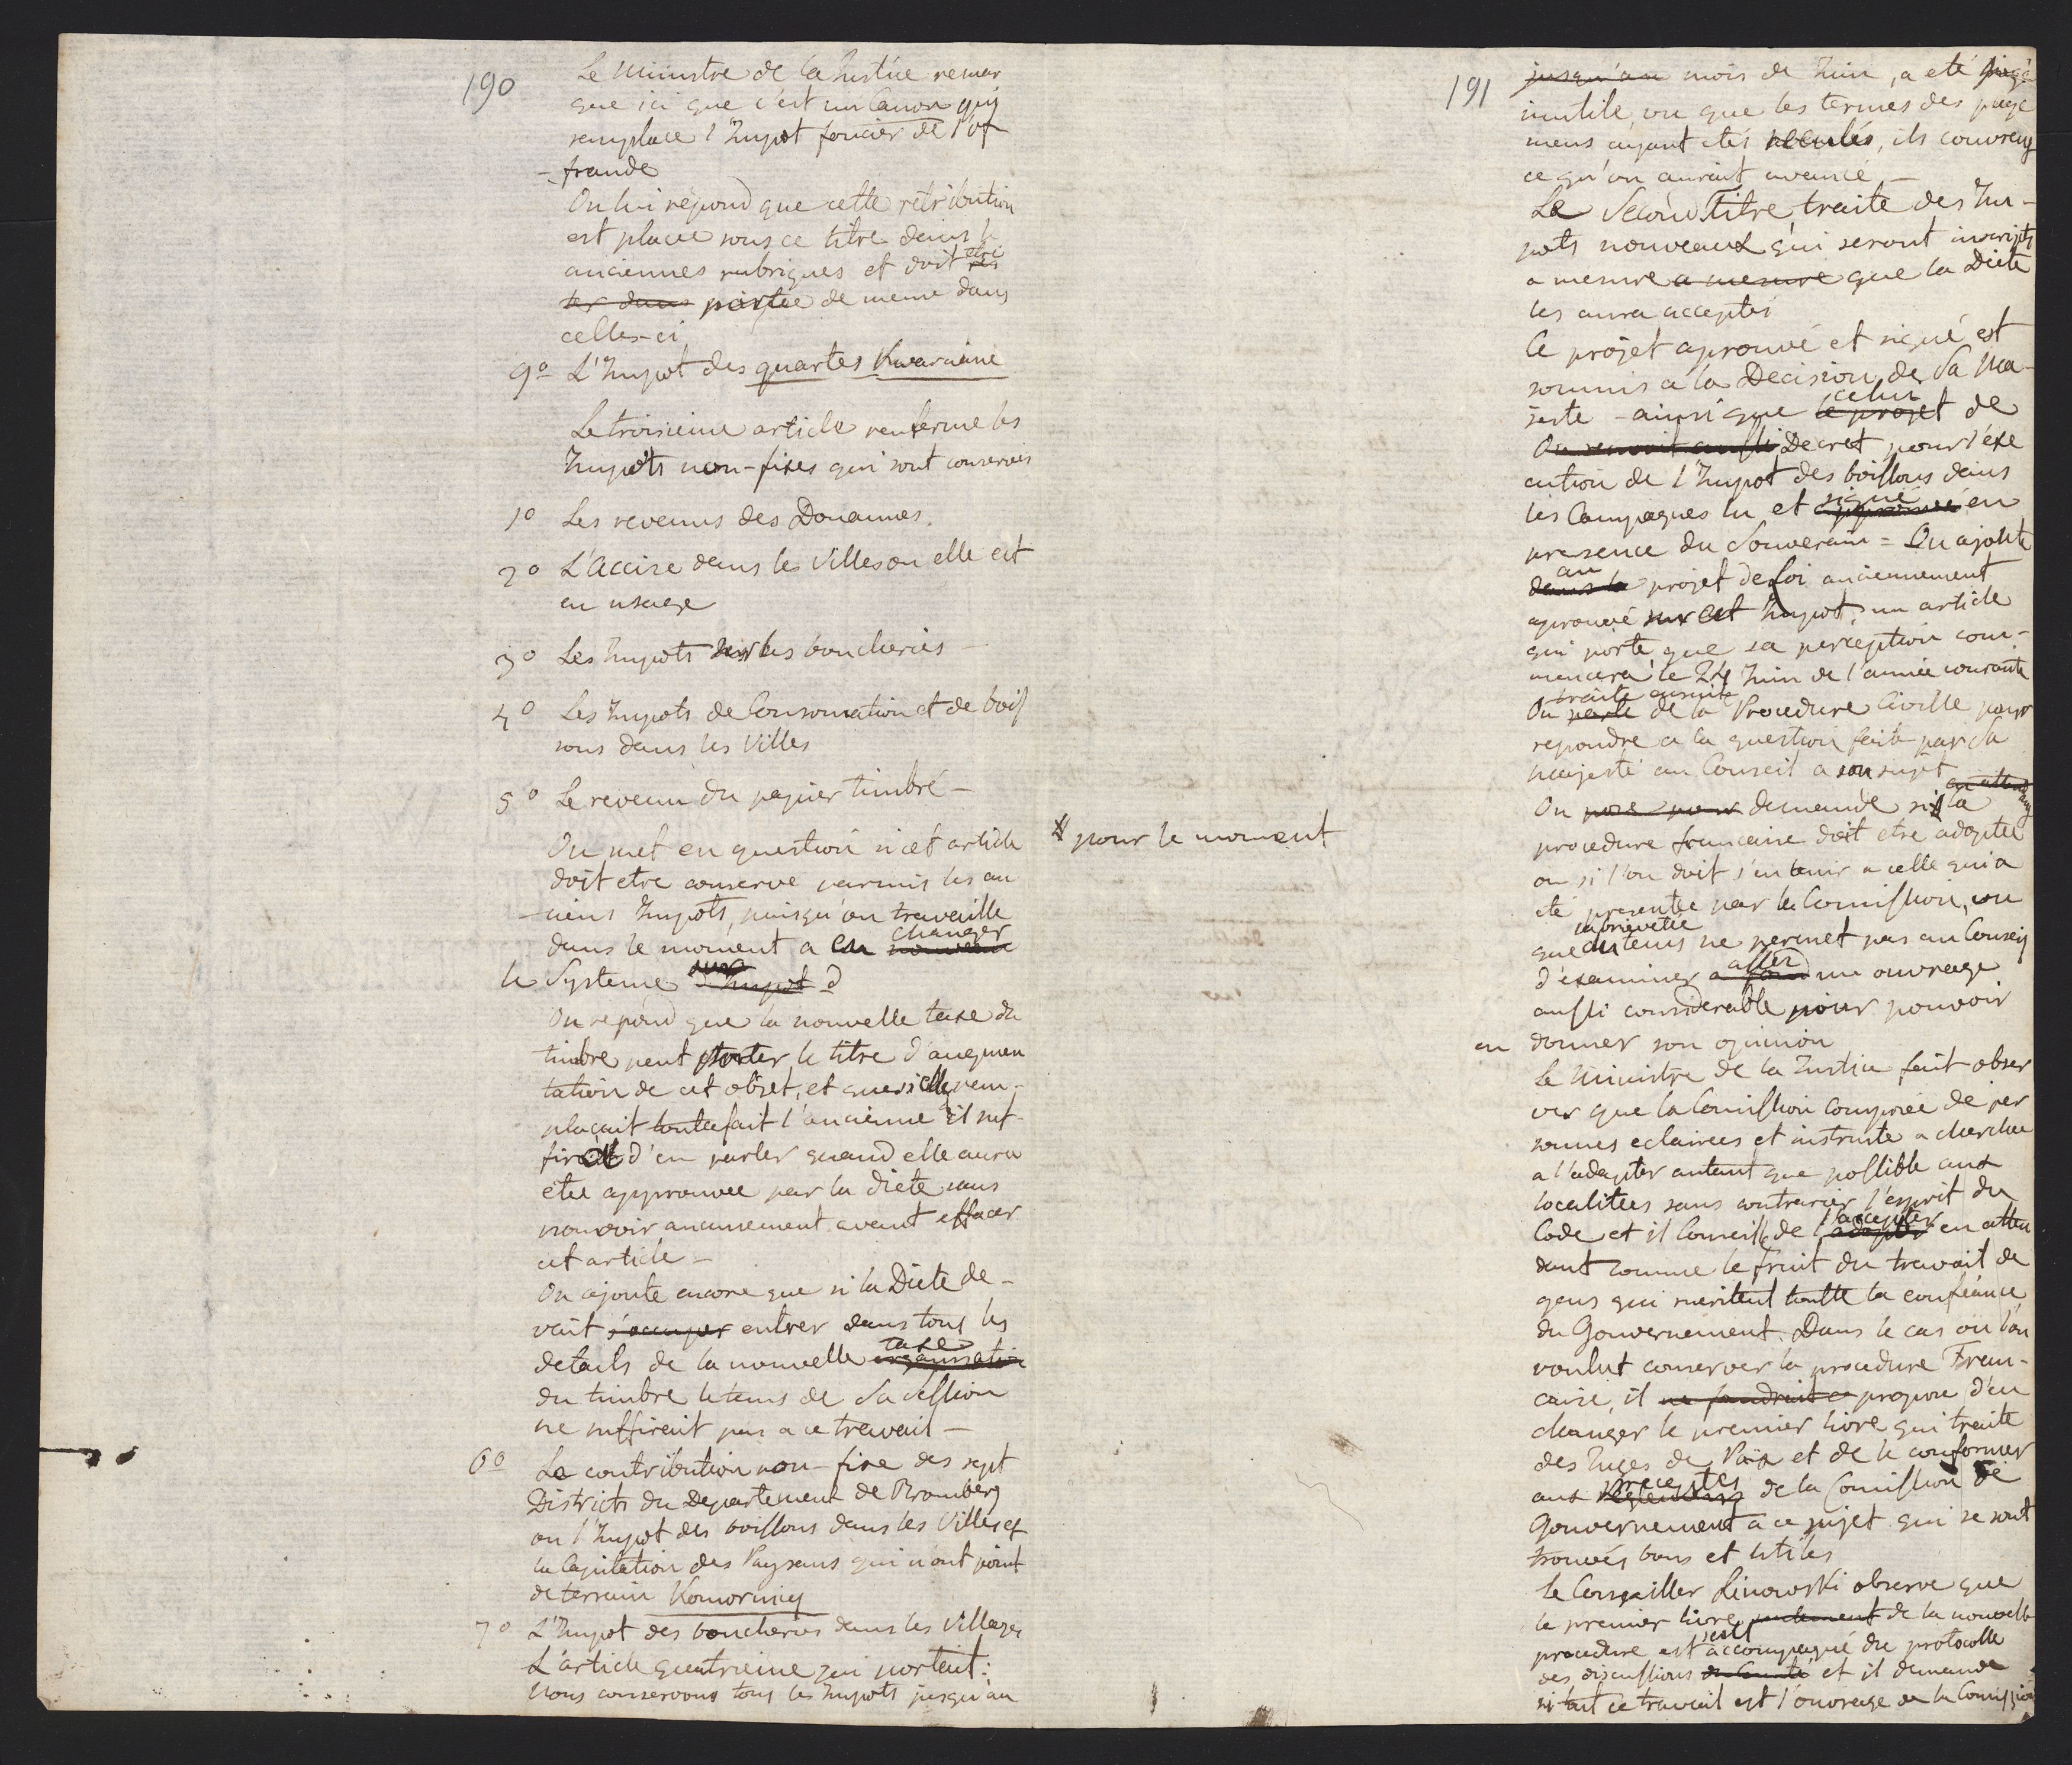 190
Le Ministre de la Justice remar
que ici que c'est un Canon qui
remplace l'Impot foncier de l'of
-frande
On lui répond que cette rétribution
est placée sous ce titre dans le
anciennes rubriques et doit etre
ter dans portée de meme dans
celles-ci
9o L'Impot des quartes Kwarciane
Le troisieme article renferme les
Impots non-fixes qui sont conservés
1o Les revenus des Douannes.
2o L'Accise dans les Villes ou elle est
en usage
3o Les Impots sur les boucheries -
4o Les Impots de Consomation et de boiss
sons dans les Villes
5o Le revenu du papier timbré -
On met en question si cet article
doit etre conservé parmis les an
-ciens Impots, puisqu'on travaille
dans le moment a en changer nouveau
le Systeme sur Impot
# pour le moment
On repond que la nouvelle taxe du
timbre peut porter le titre d'augmen
tation de cet objet, et que si elle rem-
plaçait toutafait l'ancienne il suf-
firait d'en parler quand elle aura
etée approuvée par la diete sans
pouvoir aucunement avant effacer
cet article -
On ajoute encore que si la Diete de-
vait s'occuper entrer dans tous les
details de la nouvelle taxe organisation
du timbre le tems de Sa Session
ne suffirait pas a ce travail -
6o La contribution non-fixe des sept
Districts du Departement de Bromberg
ou l'Impot des boissons dans les Villes et
la Capitation des Paysans qui n'ont point
de terrain Komornicy
7o L'Impot des boucheries dans les Villages
L'article quatrieme qui portait:
Nous conservons tous les Impots jusqu'au
191
jusqu'au mois de Juin, a eté jugé
inutile, vu que les termes des paye
mens ayant étés reculés, ils couvrent
ce qu'on aurait avancé -
Le Second Titre traite des Im-
pots nouveaux qui seront inscripts
a mesure a mesure que la Diete
les aura acceptés
Ce projet aprouvé et signé est
soumis a la Decision de Sa Ma-
jesté - ainsi que celui le projet de
On revoit aussi Decret pour l'exe
cution de l'Impot des boissons dans
les Campagnes lu et signé approuvé en
presence du Souverain = On ajoute
au dans le projet de Loi anciennement
aprouvé sur cet Impot, un article
qui porte que sa perception com-
mencera le 24 Juin de l'année courante
On traite ensuite parle de la Procedure Civille pour
repondre a la question faite par Sa
Majesté au Conseil a son sujet
On pose pour demande si la
procedure francaise doit etre adoptée
ou si l'on doit s'en tenir a celle qui a
eté presentée par la Comission, vu
que la brieveté du tems ne permet pas au Conseil
d'examiner assez a fond un ouvrage
aussi considerable pour pouvoir
en donner son opinion
Le Ministre de la Justice fait obser
ver que la Comission composée de per
sonnes eclairées et instruite a cherché
a l'adapter autant que possible aux
localitées sans contrarier l'esprit du
Code et il Conseille de l'accepter adopter en atten
dant comme le fruit du travail de
gens qui meritent toutte la confiance
du Gouvernement. Dans le cas où l'on
voulut conserver la procedure Fran-
caise, il ne faudrait ce propose d'en
changer le premier livre qui traite
des Juges de Paix et de le conformer
aux preceptes reglements de la Comission de
Gouvernement a ce sujet qui se sont
trouvés bons et utiles
Le Conseiller Linowski observe que
le premier livre seulement de la nouvelle
procedure est accompagné du protocolle
des discussions du Comité et il demande
si tout ce travail est l'ouvrage de la Comission